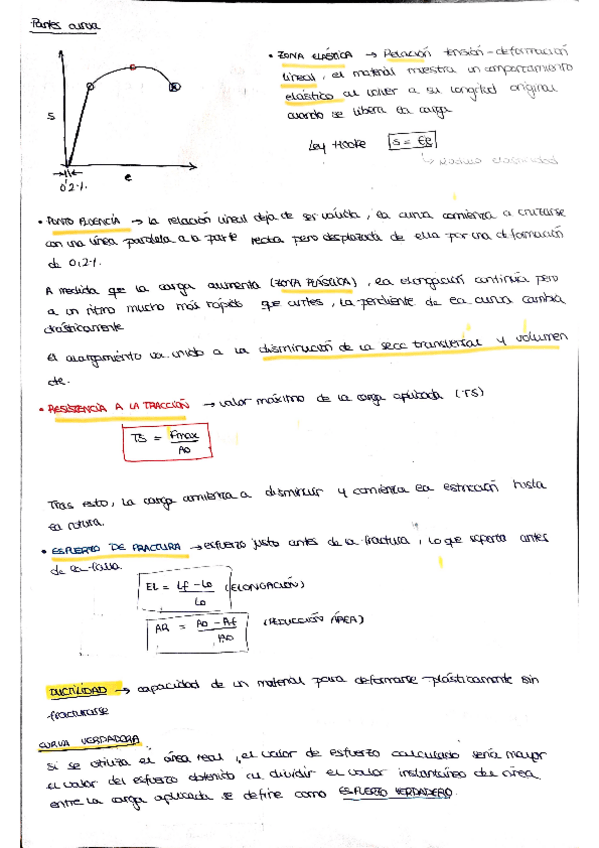 Partes curva
• ZONA ELÁSTICA → Relación tensión-deformación
lineal, el material muestra un comportamiento
elástico al volver a su longitud original
cuando se libera la carga
Ley Hooke S = eE
↳ Modulo elasticidad
S
e
0'2%
• PUNTO FLUENCIA → la relación lineal deja de ser válida, la curva comienza a cruzarse
con una línea paralela a la parte recta pero desplazada de ella por una deformación
de 0,2%.
A medida que la carga aumenta (ZONA PLÁSTICA), la elongación continúa pero
a un ritmo mucho más rápido que antes, la pendiente de la curva cambia
drásticamente
El alargamiento va unido a la disminución de la secc transversal y volumen
cte.
• RESISTENCIA A LA TRACCIÓN → valor máximo de la carga aplicada (TS)
TS = Fmax / A0
Tras esto, la carga comienza a disminuir y comienza la estricción hasta
la rotura.
• ESFUERZO DE FRACTURA → esfuerzo justo antes de la fractura, lo que soporta antes
de la
EL = Lf - L0 / L0 (ELONGACIÓN)
AR = A0 - Af / A0 (REDUCCIÓN ÁREA)
DUCTILIDAD → capacidad de un material para deformarse plásticamente sin
fracturarse
CURVA VERDADERA
Si se utiliza el área real, el valor de esfuerzo calculado sería mayor
el valor del esfuerzo obtenido al dividir el valor instantáneo del área
entre la carga aplicada se define como ESFUERZO VERDADERO.